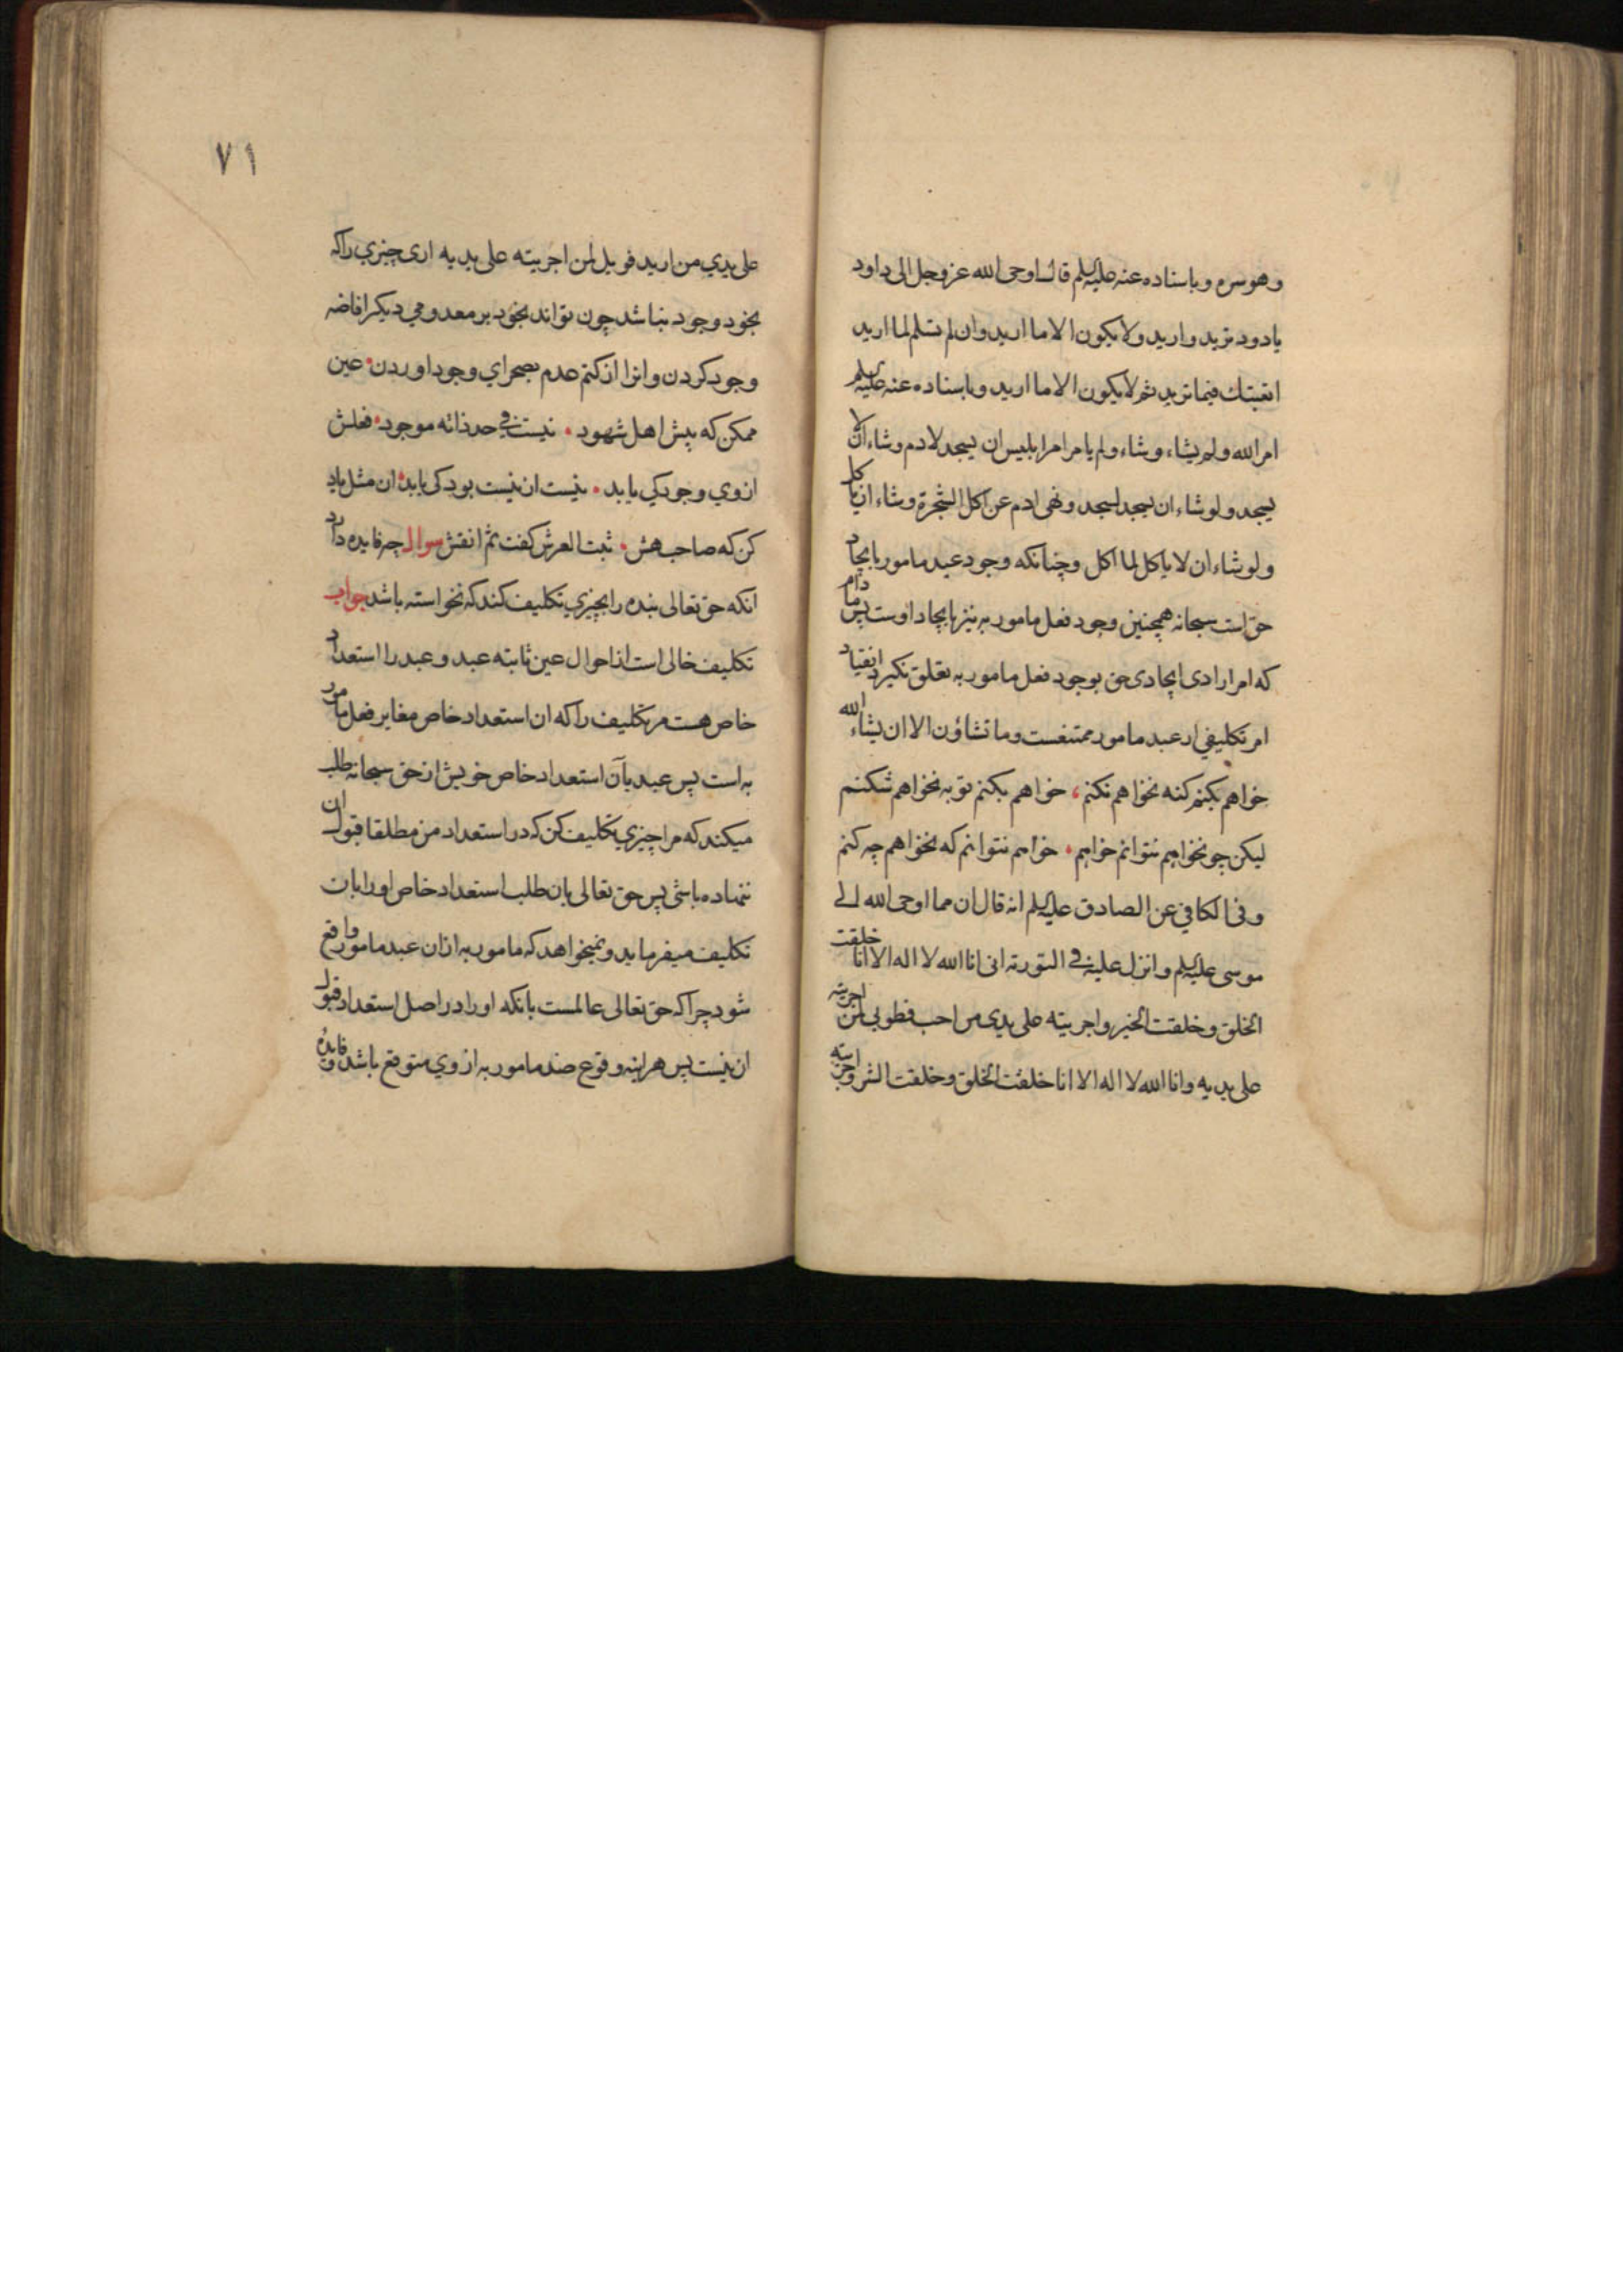 وهو سره وباسناده عنه علیه السلم قال اوحی الله عز وجل الی داود
یا دود ترید و ارید ولا یکون الا ما ارید وان لم تسلم لما ارید
اتعبتك فیما ترید ثم لا یکون الا ما ارید وباسناده عنه علیه السلم
امر الله ولم یشاء وشاء ولم یامر امر ابلیس ان یسجد لادم وشاء ان لا
یسجد ولو شاء ان یسجد لسجد ونهی ادم عن اکل الشجرة وشاء ان یاکل
ولو شاء ان لا یاکل لما اکل وچنانکه وجود عبد مامور بایجاد
حق است سبحانه همچنین وجود فعل مامور به نیز بایجاد اوست پس مادام
که امر ارادی ایجادی حق بوجود فعل مامور به تعلق نکیرد انقیاد
امر تکلیفی از عبد مامور ممتنعست وما تشاؤن الا ان یشاء الله
خواهم بکنم کنه نخواهم نکنم، خواهم بکنم توبه نخواهم شکنم
لیکن چو نخواهم نتوانم خواهم • خواهم نتوانم که نخواهم چه کنم
وفی الکافی عن الصادق علیه السلم انه قال ان مما اوحی الله الی
موسی علیه السلم وانزل علیه فی التوریة انی انا الله لا اله الا انا خلقت
الخلق وخلقت الخیر واجریته علی یدی من احب فطوبی لمن اجریته
علی یدیه وانا الله لا اله الا انا خلقت الخلق وخلقت الشر واجریته
٧١
علی یدي من ارید فویل لمن اجریته علی یدیه اری چیزي را که
بخود وجود نباشد چون تواند بخود بر معدومي دیکر افاضه
وجود کردن وانرا از کتم عدم بصحراي وجود اوردن • عین
ممکن که پیش اهل شهود • نیست فی حد ذاته موجود • فعلش
از وي وجود کي یابد • نیست ان نیست بود کی یابد • ان مثل یاد
کن که صاحب هش • ثبت العرش کفت ثم انقش سوال چه فایده دارد
انکه حق تعالی بنده را بچیزي تکلیف کند که نخواسته باشد جواب
تکلیف خالی است از احوال عین ثابته عبد و عبد را استعداد
خاص هست مر تکلیف را که ان استعداد خاص مغایر فعل مامور
به است پس عبد بآن استعداد خاص خویش از حق سبحانه طلب
میکند که مرا چیزي تکلیف کن که در استعداد من مطلقا قبول ان
ننهاده باشی پس حق تعالی بان طلب استعداد خاص او را بان
تکلیف میفرماید و نمیخواهد که مامور به از ان عبد مامور واقع
شود چرا که حق تعالی عالمست بانکه او را در اصل استعداد قبول
ان نیست پس هراینه وقوع ضد مامور به از وي متوقع باشد و فایدهٔ